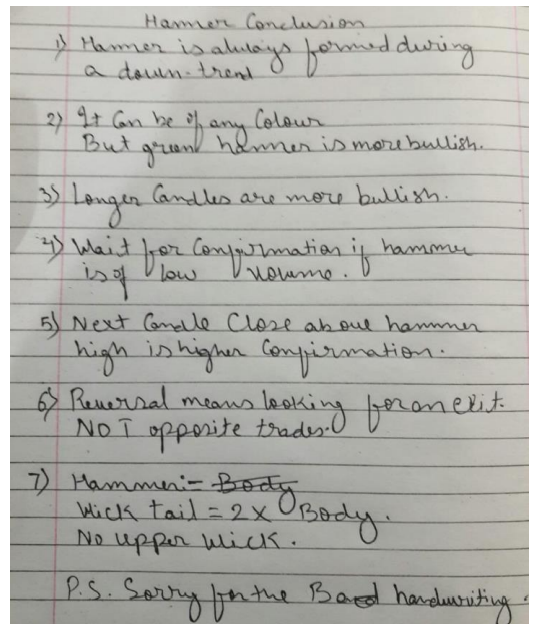 Hammer Conclusion
1) Hammer is always formed during
a down-trend
2) It Can be of any Colour
But green hammer is more bullish.
3) Longer Candles are more bullish.
4) Wait for Confirmation if hammer
is of low volume.
5) Next Candle Close above hammer
high is higher Confirmation.
6) Reversal means looking for an exit.
NOT opposite trades.
7) Hammer:- Body
Wick tail = 2x Body.
No upper Wick.
P.S. Sorry for the Bad handwriting.